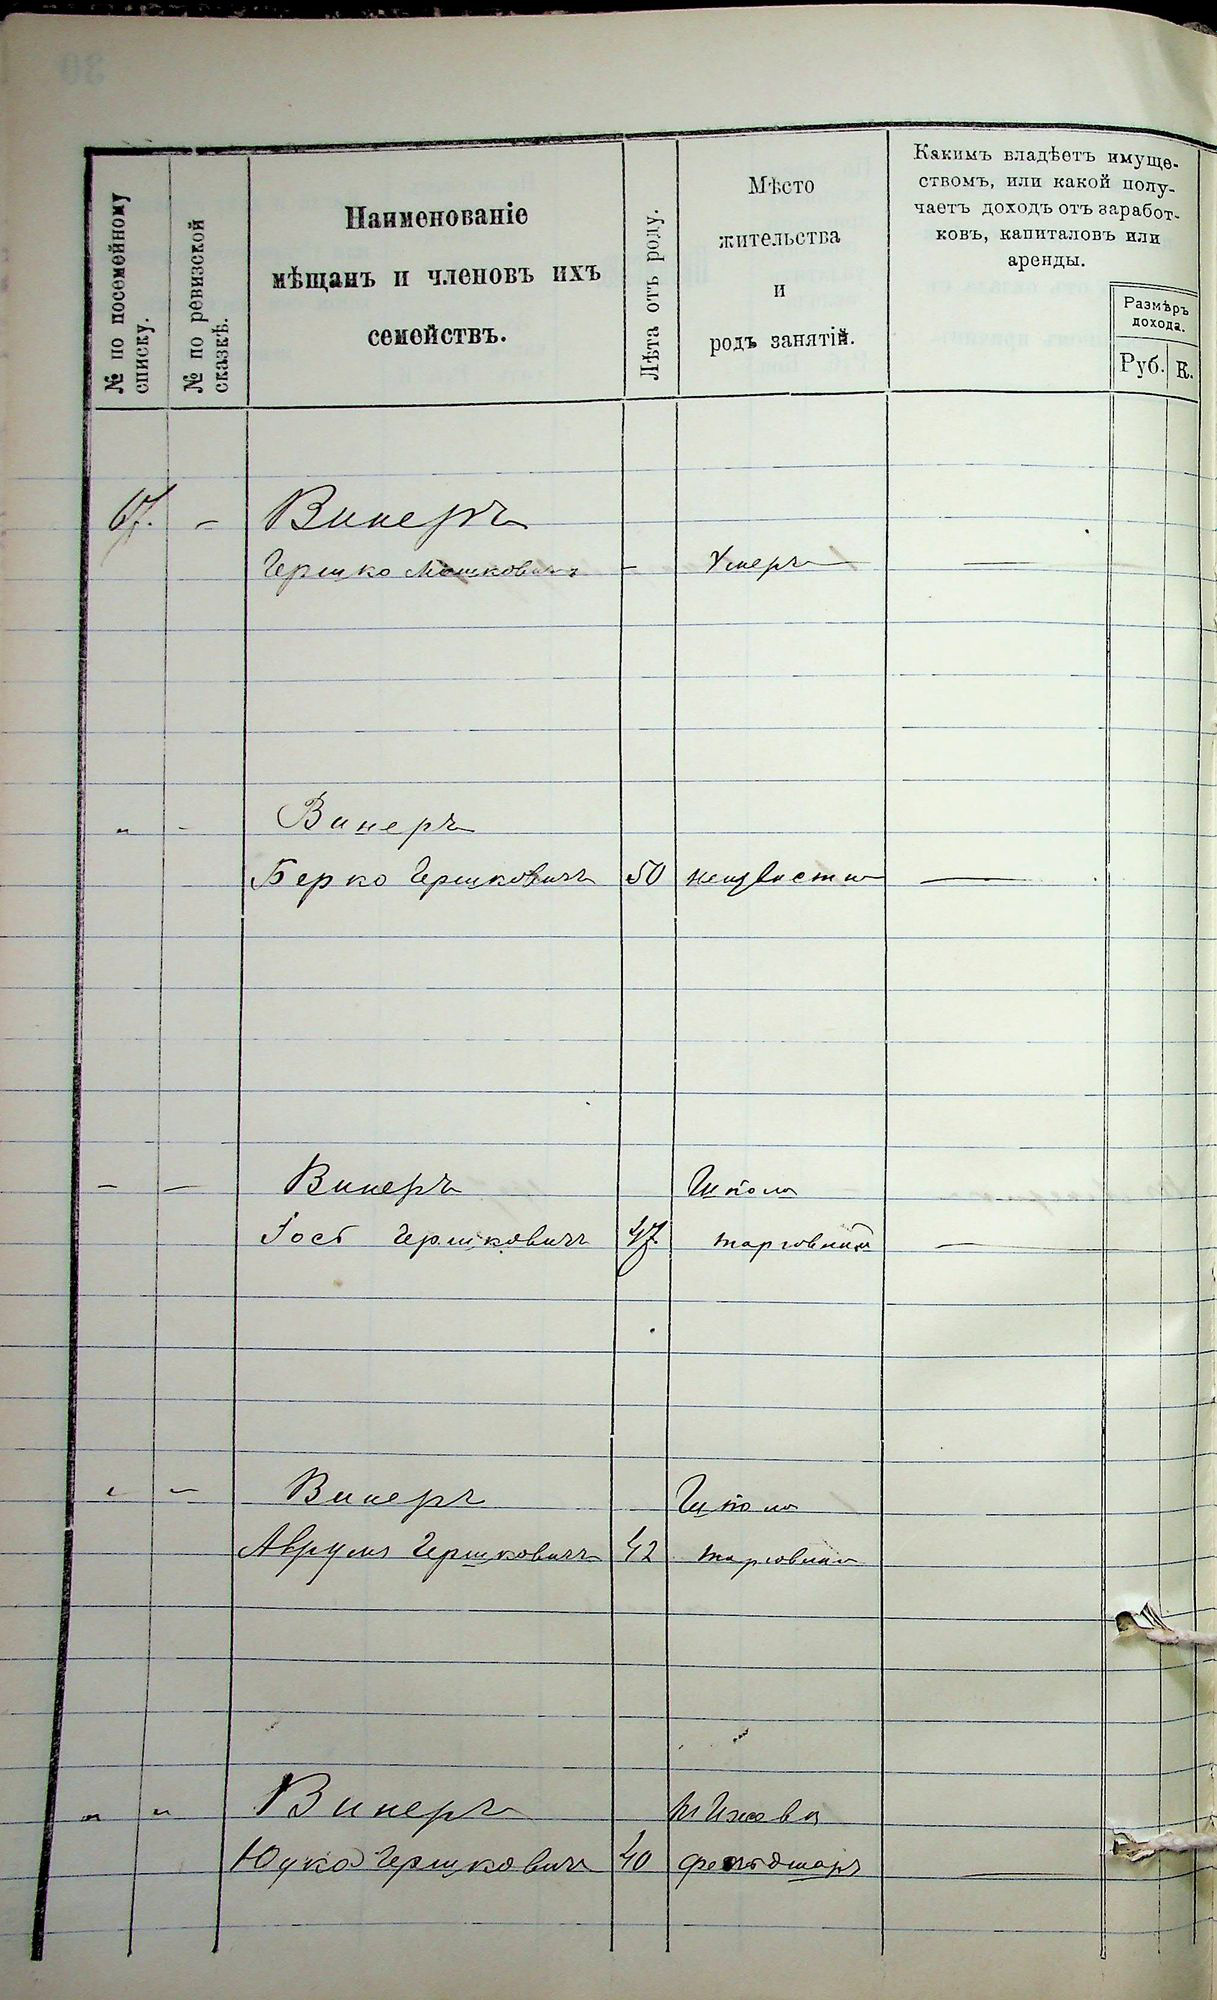 № по посемейному
списку.
№ по ревизской
сказкѣ.
Наименованіе
мѣщанъ и членовъ ихъ
семействъ.
Лѣта отъ роду.
Мѣсто
жительства
и
родъ занятій.
Какимъ владѣетъ имуще-
ствомъ, или какой полу-
чаетъ доходъ отъ заработ-
ковъ, капиталовъ или
аренды.
Размѣръ
дохода.
Руб. К.
67. – Винеръ
Гершко Мошковичъ – Умеръ —
„ - Винеръ
Берко Гершковичъ 50 неизвѣстно —
– – Винеръ Шпола
Іось Гершковичъ 47 торговецъ —
„ – Винеръ Шпола
Аврумъ Гершковичъ 42
„ „ Винеръ
Юдко Гершковичъ 40 фельдшеръ —